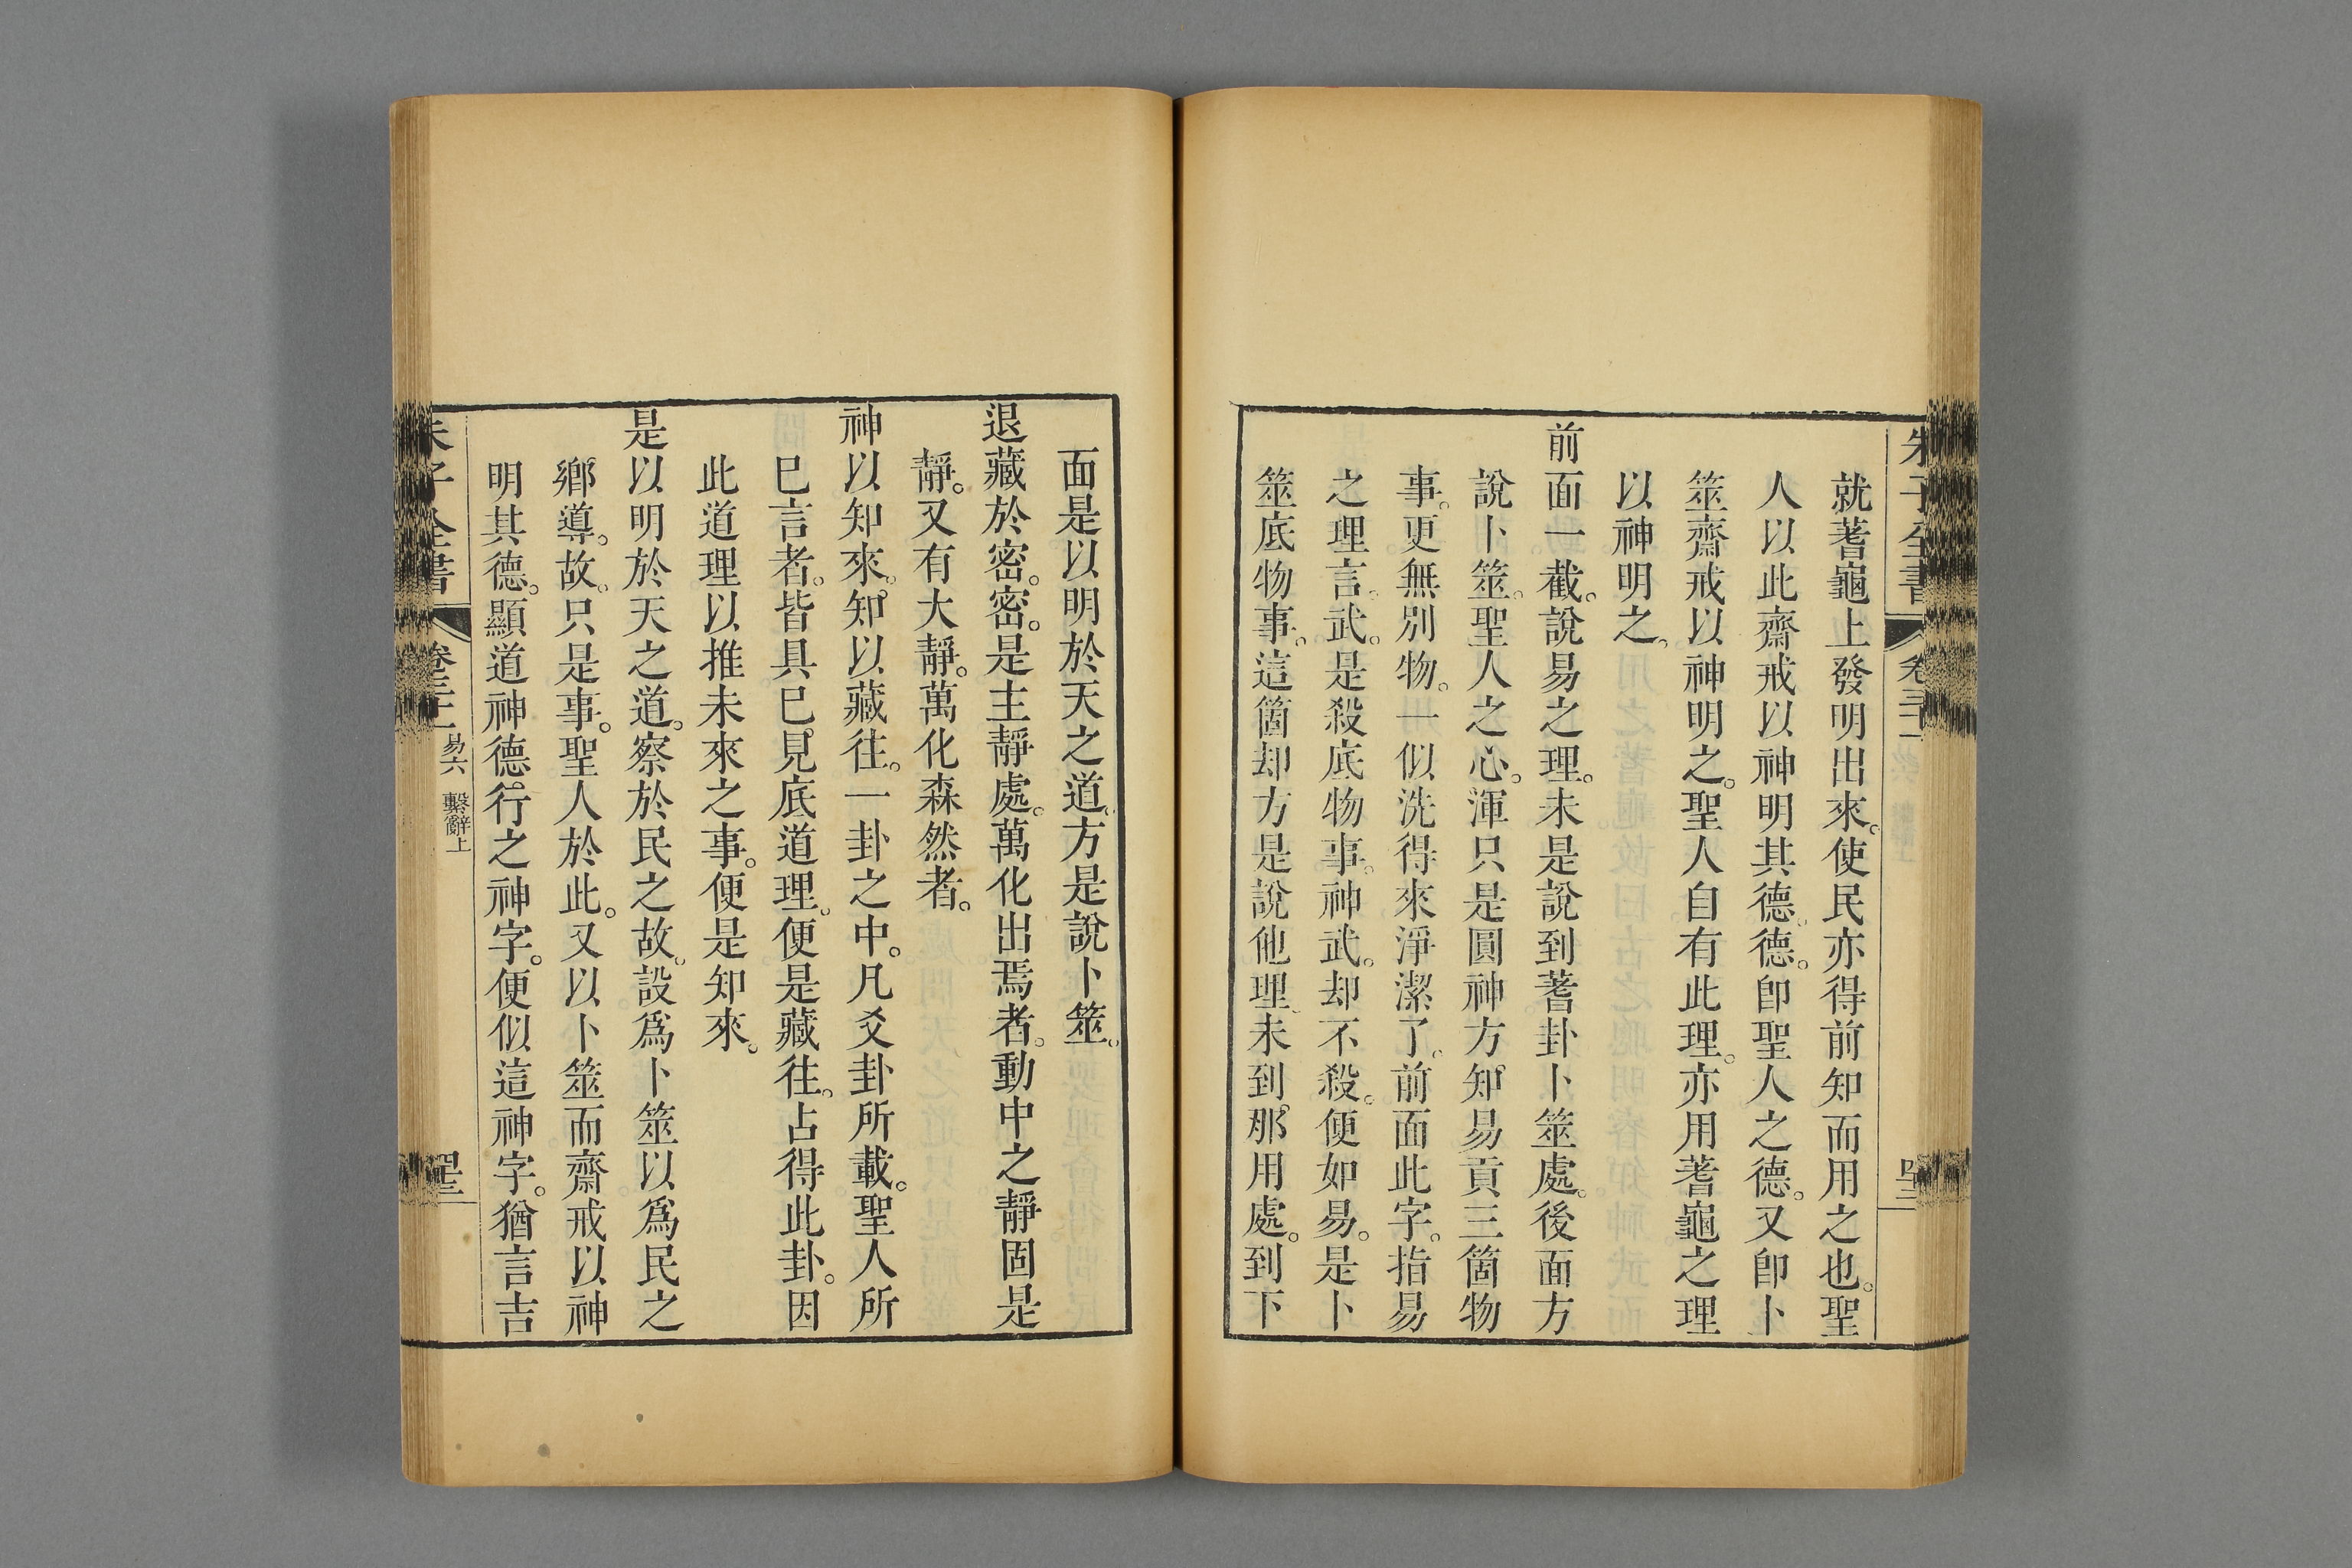 朱子全書 卷三十一
就蓍龜上發明出來。使民亦得前知而用之也。聖
人以此齋戒以神明其德。德。卽聖人之德。又卽卜
筮齋戒以神明之。聖人自有此理。亦用蓍龜之理
以神明之。
前面一截。說易之理。未是說到蓍卦卜筮處。後面方
說卜筮。聖人之心。渾只是圓神方知。易貢三箇物
事。更無別物。一似洗得來淨潔了。前面此字。指易
之理言。武。是殺底物事。神武。却不殺。便如易。是卜
筮底物事。這箇却方是說他理。未到那用處。到下
面是以明於天之道。方是說卜筮。
退藏於密。密。是主靜處。萬化出焉者。動中之靜固是
靜。又有大靜。萬化森然者。
神以知來。知以藏往。一卦之中。凡爻卦所載。聖人所
已言者。皆具已見底道理。便是藏往。占得此卦。因
此道理以推未來之事。便是知來。
是以明於天之道。察於民之故。設爲卜筮以爲民之
鄉導。故。只是事。聖人於此。又以卜筮而齋戒以神
明其德。顯道神德行之神字。便似這神字。猶言吉
朱子全書 卷三十一 易六 繫辭上